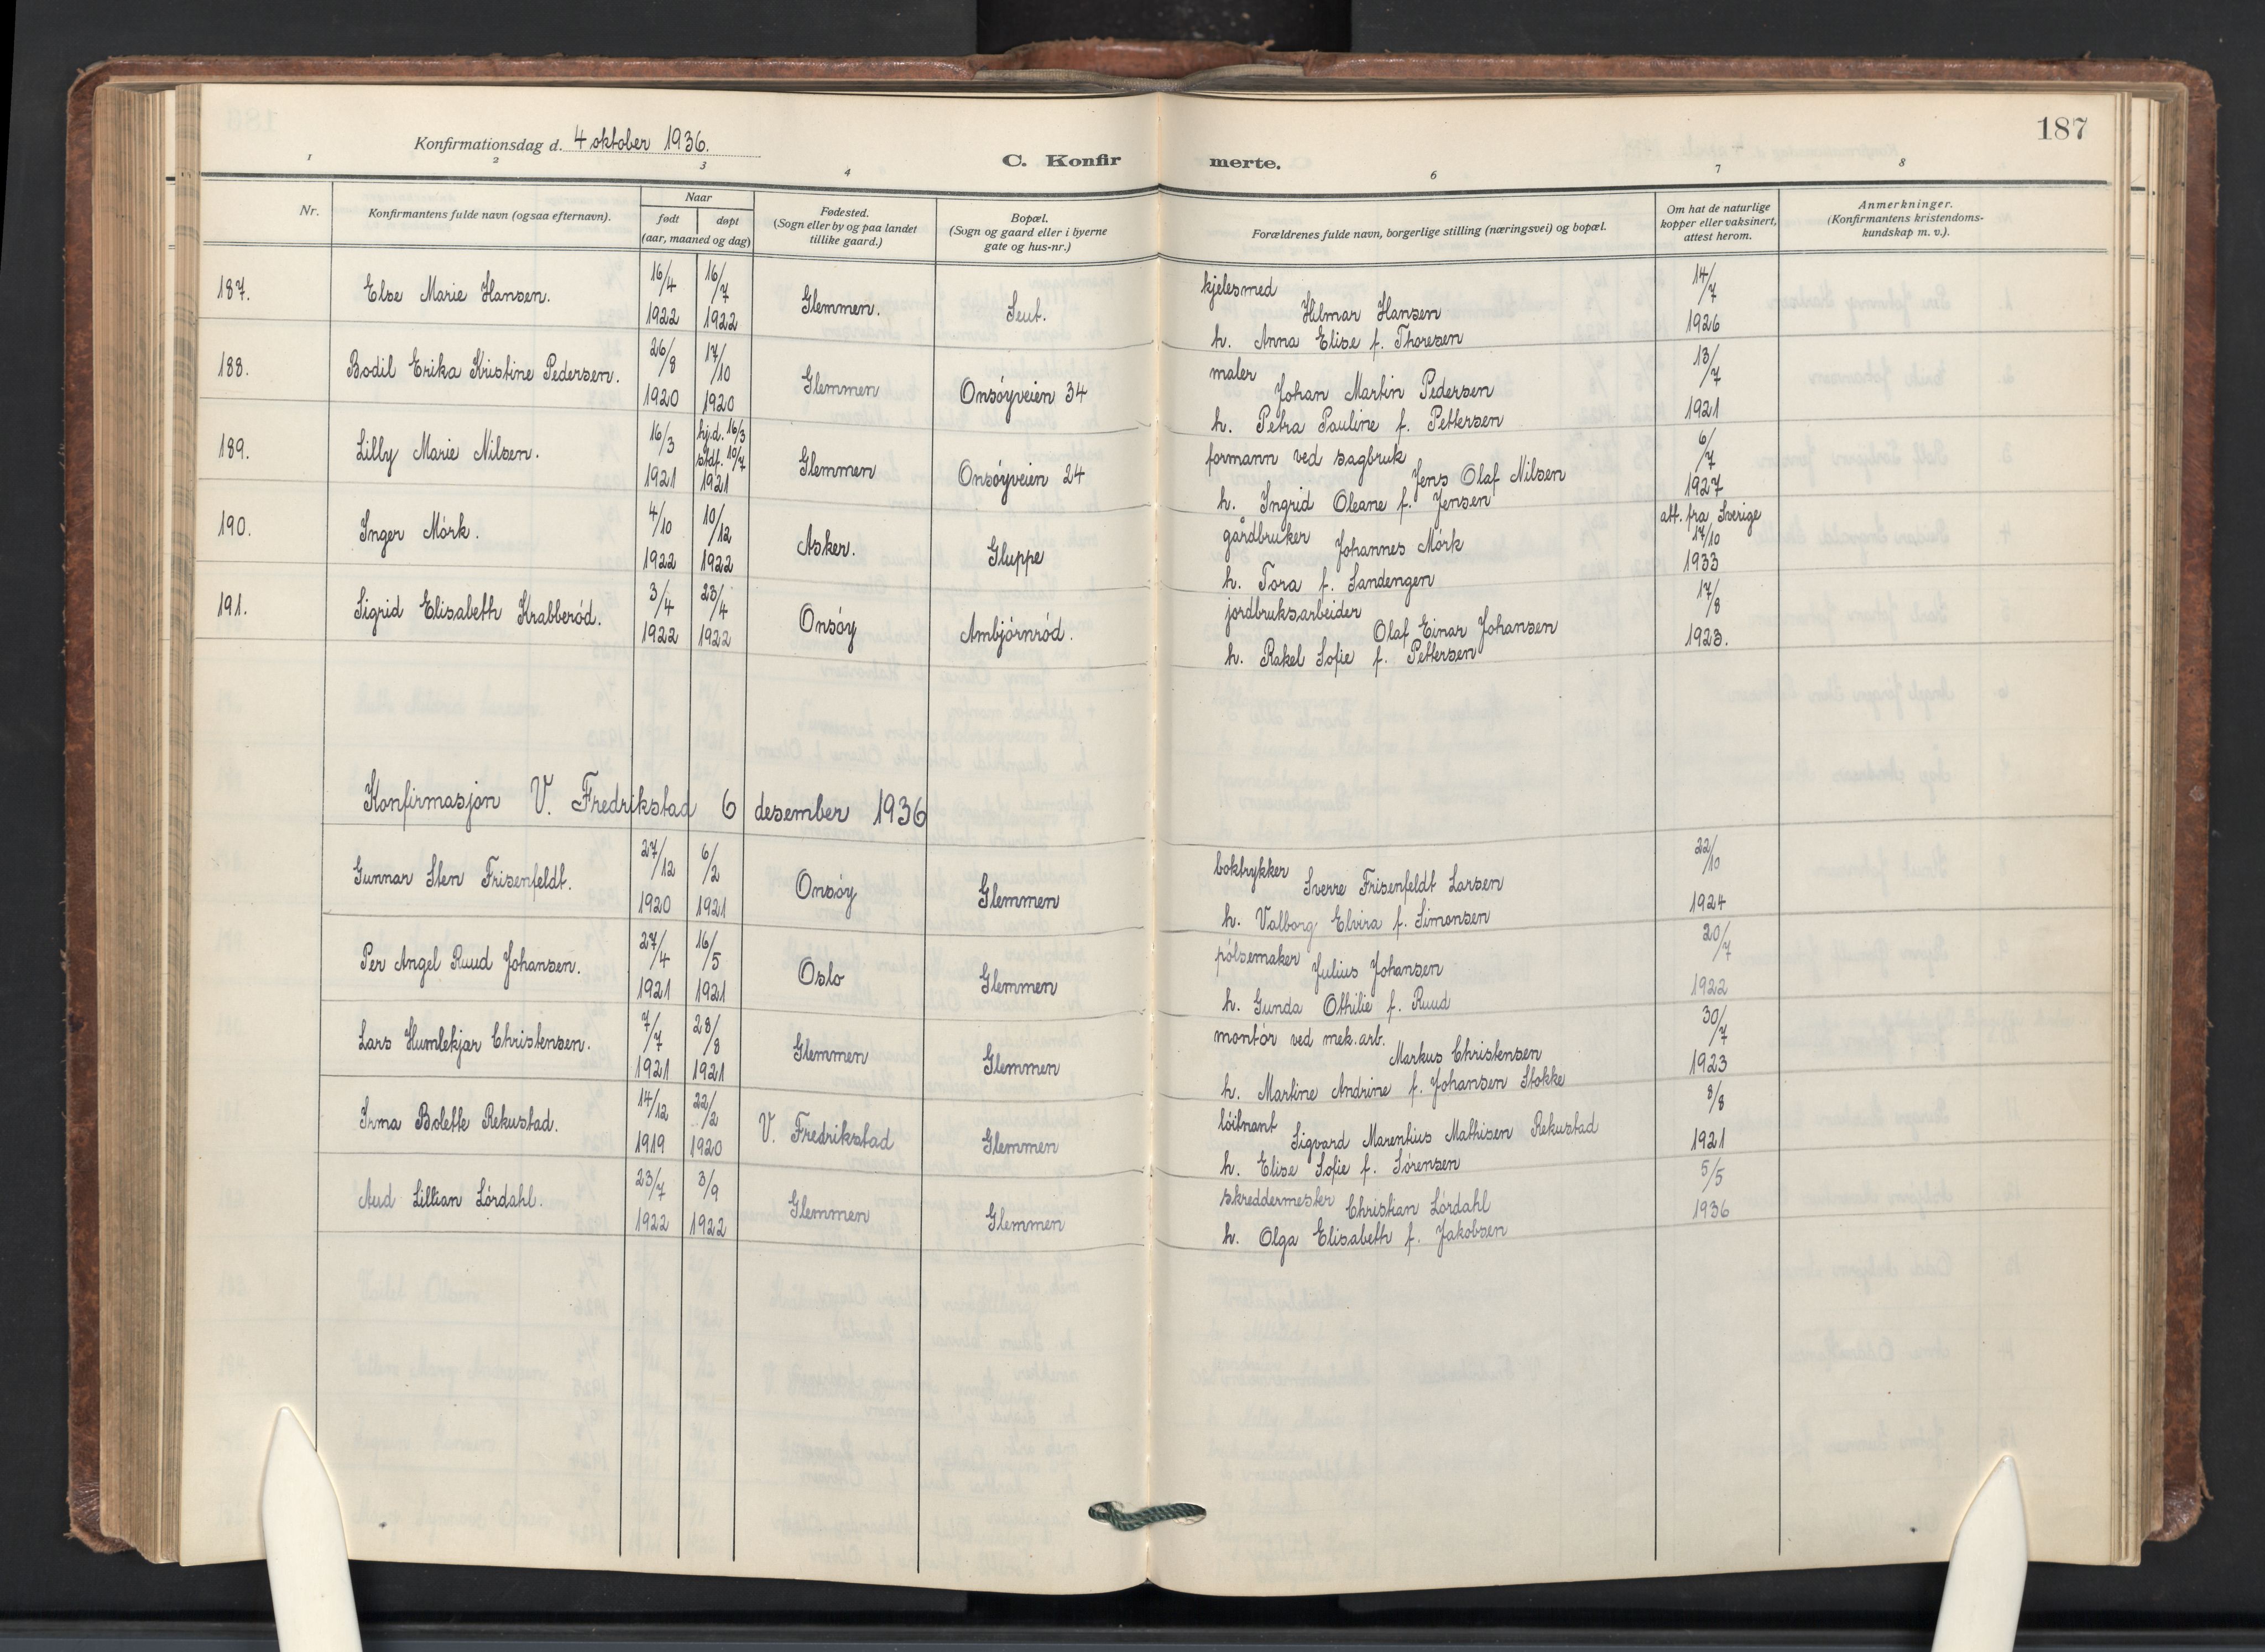 187
Konfirmationsdag d. 4 oktober 1936.
C. Konfir merte.
1 2 3 4 6 7 8
Nr.
Konfirmantens fulde navn (ogsaa efternavn).
Naar
født døpt
(aar, maaned og dag)
Fødested.
(Sogn eller by og paa landet
tillike gaard.)
Bopæl.
(Sogn og gaard eller i byerne
gate og hus-nr.)
Forældrenes fulde navn, borgerlige stilling (næringsvei) og bopæl.
Om hat de naturlige
kopper eller vaksinert,
attest herom.
Anmerkninger.
(Konfirmantens kristendoms-
kundskap m. v.).
187. Else Marie Hansen. 16/4 1922 16/7 1922 Glemmen. Seut. kjelesmed
Hilmar Hansen
h. Anna Elise f. Thoresen
14/7 1926
188. Bodil Erika Kristine Pedersen. 26/8 1920 17/10 1920 Glemmen Onsöyveien 34 maler
Johan Martin Pedersen
h. Petra Pauline f. Pettersen
13/7 1921
189. Lilly Marie Nilsen. 16/3 1921 hjd. 16/3 stdf. 10/7 1921 Glemmen Onsöyveien 24 formann ved sagbruk
Jens Olaf Nilsen
h. Ingrid Oleane f. Jensen
6/7 1927
190. Inger Mörk. 4/10 1922 10/12 1922 Asker. Gluppe gårdbruker
Johannes Mörk
h. Tora f. Sandengen
att. fra Sverige
17/10 1933
191. Sigrid Elisabeth Krabberöd. 3/4 1922 23/4 1922 Onsöy Ambjörnröd. jordbruksarbeider
Olaf Einar Johansen
h. Rakel Sofie f. Pettersen
17/8 1923.
Konfirmasjon V. Fredrikstad 6 desember 1936
Gunnar Sten Frisenfeldt. 27/12 1920 6/2 1921 Onsöy Glemmen boktrykker
Sverre Frisenfeldt Larsen
h. Valborg Elvira f. Simonsen
22/10 1924
Per Angel Ruud Johansen. 27/4 1921 16/5 1921 Oslo Glemmen pölsemaker
Julius Johansen
h. Gunda Othilie f. Ruud
20/7 1922
Lars Humlekjær Christensen. 7/7 1921 28/8 1921 Glemmen Glemmen montör ved mek. arb.
Markus Christensen
h. Martine Andrine f. Johansen Stokke
30/7 1923
Irma Bolette Rekustad. 14/12 1919 22/2 1920 V. Fredrikstad Glemmen löitnant
Sigvard Marentius Mathisen Rekustad
h. Elise Sofie f. Sörensen
8/8 1921
Aud Lillian Lördahl. 23/7 1922 3/9 1922 Glemmen Glemmen skreddermester
Christian Lördahl
h. Olga Elisabeth f. Jakobsen
5/5 1936